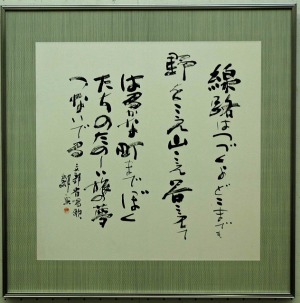 線路はつづくよどこまでも
野をこえ山こえ谷こえて
はるかな町までぼく
たちのたのしい旅の夢
つないでる
文部省唱歌